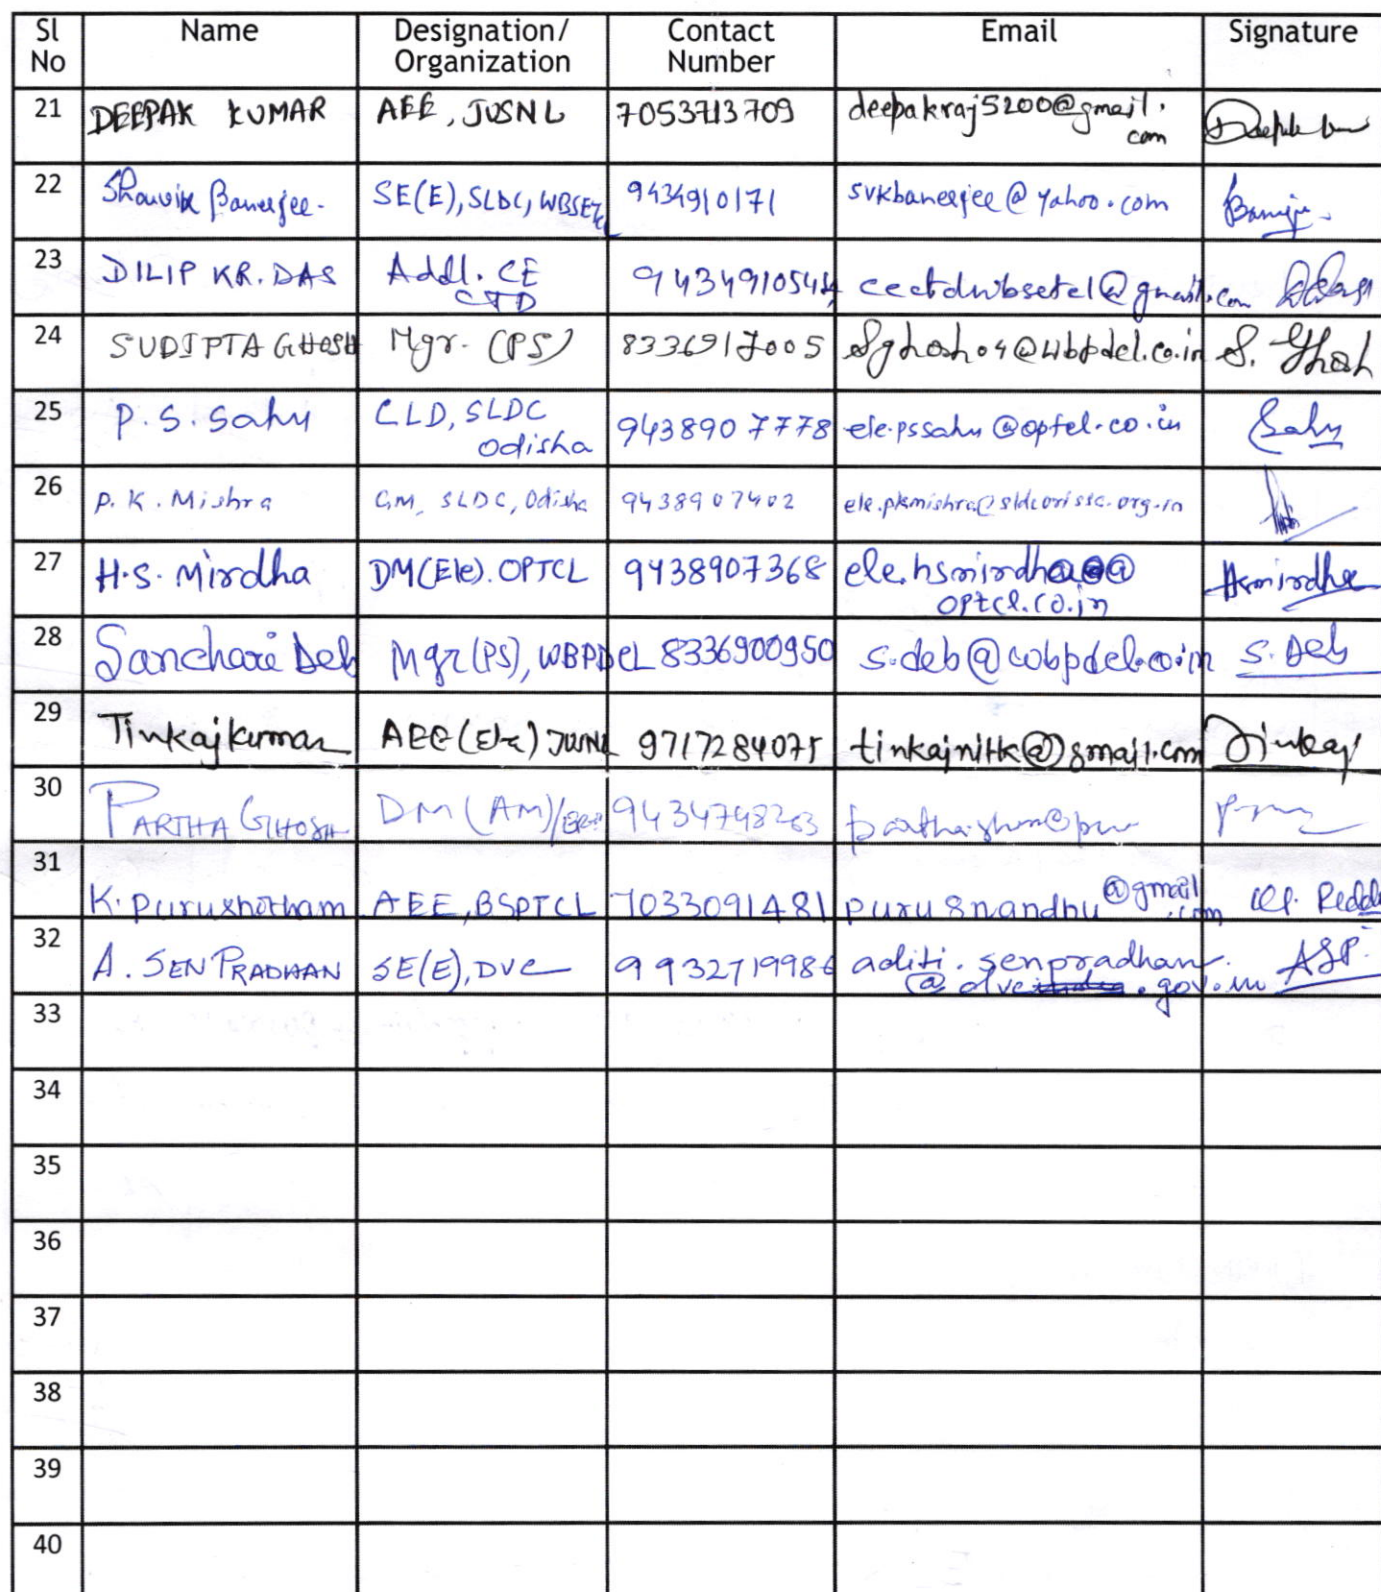 Sl No Name Designation/ Organization Contact Number Email Signature
21 DEEPAK KUMAR AEE, JUSNL 7053713709 deepakraj5200@gmail.
com
22 Shouvik Banerjee. SE(E), SLDC, WBSETCL 9434910171 svkbanerjee@yahoo.com
23 DILIP KR. DAS Addl. CE 9434910544 cectdwbsetcl@gmail.com
CTD
24 SUDIPTA GHOSH Mgr. (PS) 8336917005 sghosh04@wbpdcl.co.in S. Ghosh
25 P.S. Sahu CLD, SLDC 9438907778 ele.pssahu@optcl.co.in Sahu
Odisha
26 P.K. Mishra GM, SLDC, Odisha 9438907402 ele.pkmishra@sldcorissa.org.in
27 H.S. Mirdha DM(Ele). OPTCL 9438907368 ele.hsmirdha@
optcl.co.in Hsmirdha
28 Sanchari Deb Mgr(PS), WBPDCL 8336900950 s.deb@wbpdcl.co.in S. Deb
29 Tinkajkumar AEE(Ele) JUSNL 9717284075 tinkajnitk@gmail.com Tinkaj
30 PARTHA GHOSH DM(AM)/ 9434748263
31 K. Purushotham AEE, BSPTCL 7033091481 puru8nandhu@gmail
.com K.P. Reddy
32 A. SEN PRADHAN SE(E), DVC 9932719986 aditi.senpradhan
@dvc.gov.in ASP
33
34
35
36
37
38
39
40